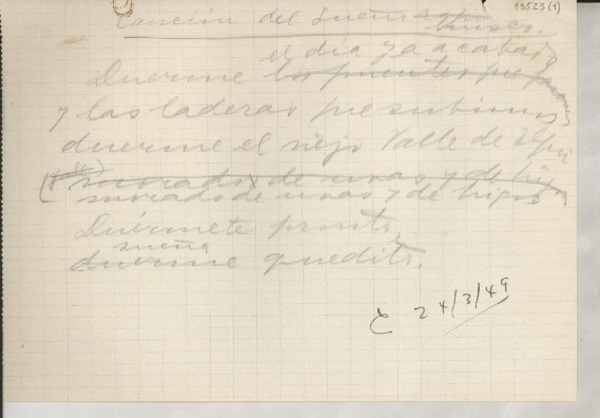 13523(1)
Canción del Sueño
busco.
el día ya acabado
Duerme los puentes que
y las laderas que subimos
duerme el viejo Valle de Elqui
morado de uvas y de hig
morado de uvas y de higos
Duérmete pronto,
sueña
duerme quedito.
24/3/49